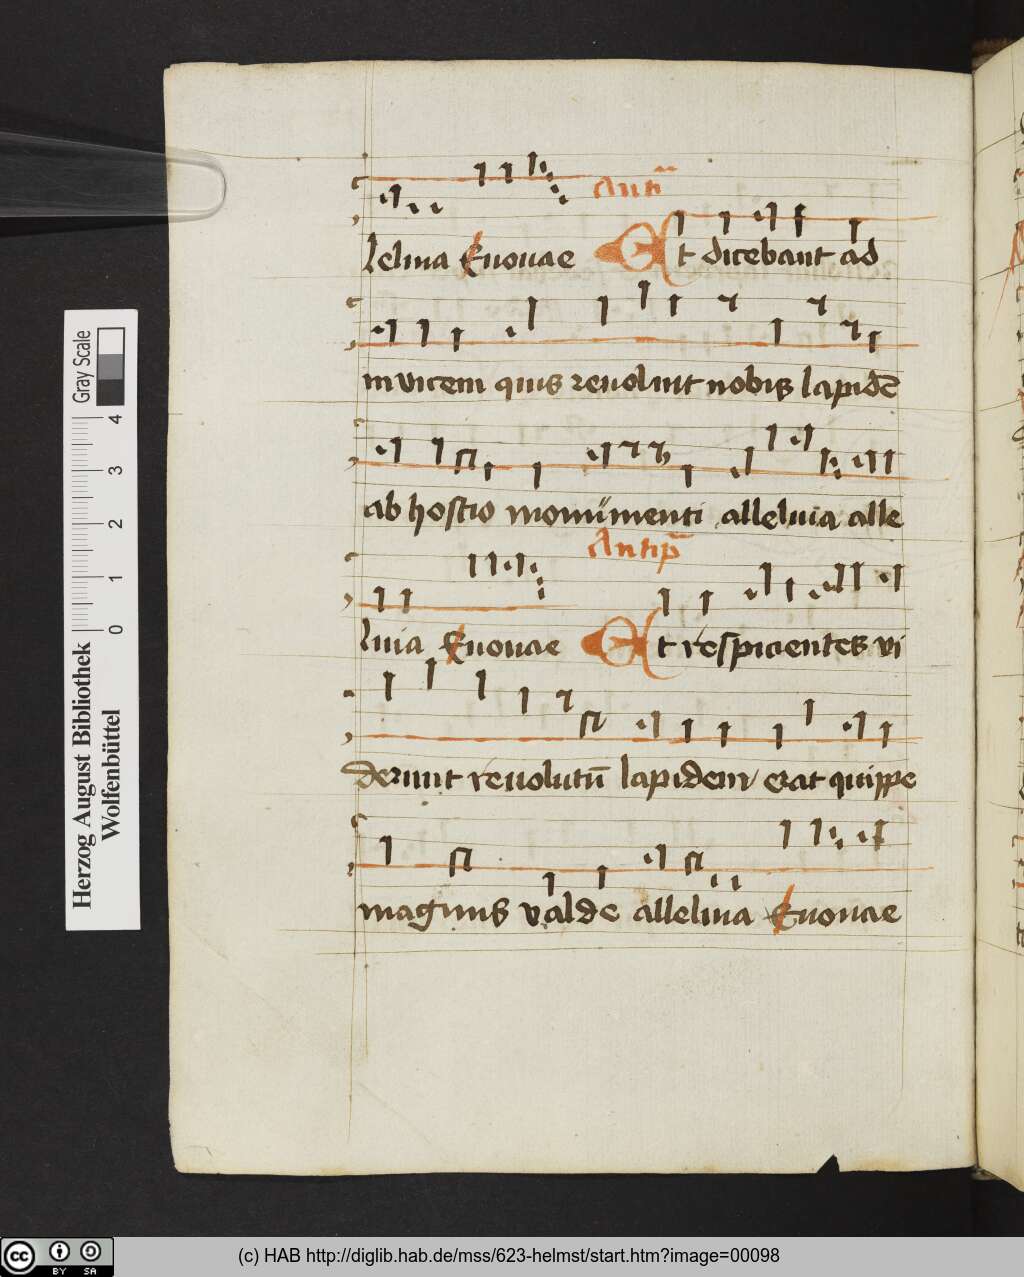 Antī
leluia Euouae Et dicebant ad
inuicem quis reuoluit nobis lapidē
ab hostio monumenti alleluia alle
Antip̄
luia Euouae Et respicientes vi
derunt reuolutū lapidem erat quippe
magnus valde alleluia Euouae
Gray Scale
0 1 2 3 4
Herzog August Bibliothek
Wolfenbüttel
cc BY SA
(c) HAB http://diglib.hab.de/mss/623-helmst/start.htm?image=00098